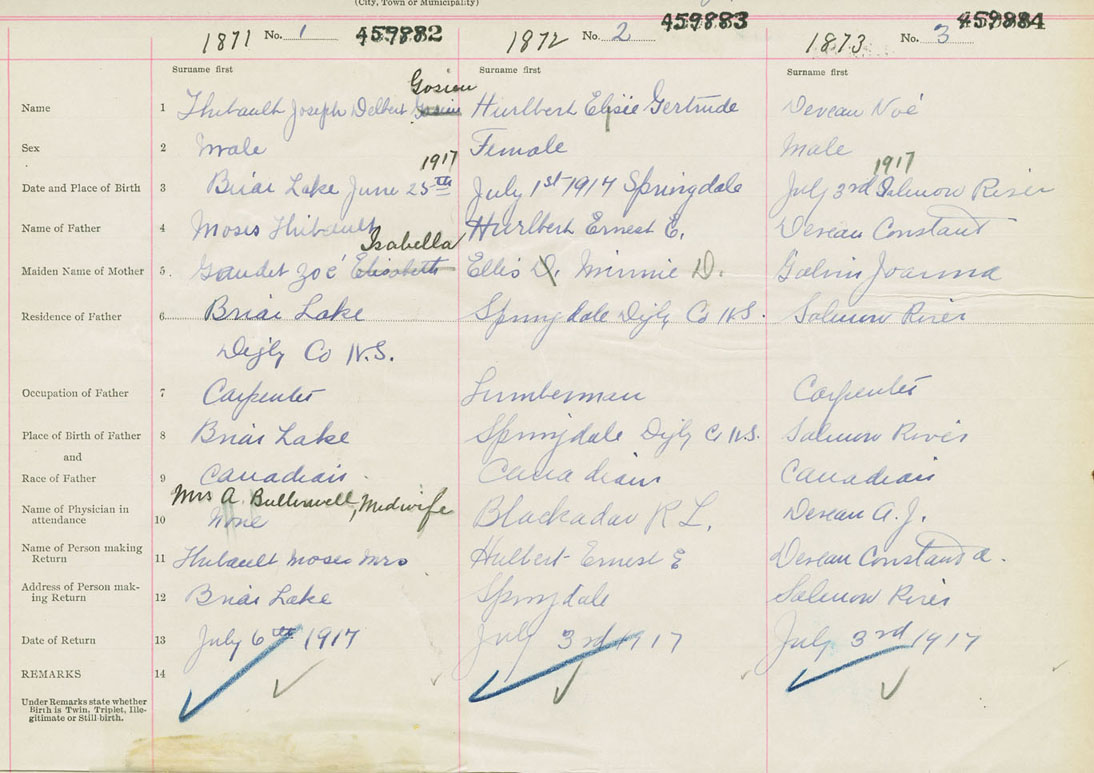 (City, Town or Municipality)
1871 No. 1 459882 1872 No. 2 459883 1873 No. 3 459884
Surname first Surname first Surname first
Gosien
Name 1 Thibault Joseph Delbert Hurlbert Elsie Gertrude Deveau Noé
Sex 2 Male Female Male
1917 1917
Date and Place of Birth 3 Briar Lake June 25th July 1st 1917 Springdale July 3rd Salmon River
Name of Father 4 Moses Thibault Hurlbert Ernest E. Deveau Constant
Isabella
Maiden Name of Mother 5. Gaudet Zoé Elisabeth Ellis D. Minnie D. Galvin Joanna
Residence of Father 6 Briar Lake Springdale Digby Co N.S. Salmon River
Digby Co N.S.
Occupation of Father 7 Carpenter Lumberman Carpenter
Place of Birth of Father 8 Briar Lake Springdale Digby Co N.S. Salmon River
and
Race of Father 9 Canadian Canadian Canadian
Mrs A. Bullerwell, Midwife
Name of Physician in
attendance 10 None Blackadar R L. Deveau A. J.
Name of Person making
Return 11 Thibault Moses Mrs Hulbert Ernest E Deveau Constant a.
Address of Person mak-
ing Return 12 Briar Lake Springdale Salmon River
Date of Return 13 July 6th 1917 July 3rd 1917 July 3rd 1917
REMARKS 14
Under Remarks state whether
Birth is Twin, Triplet, Ille-
gitimate or Still-birth.